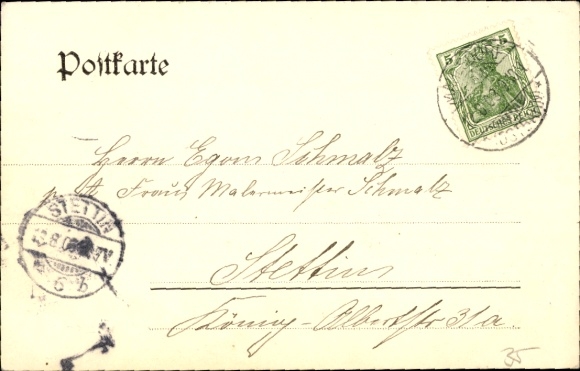 Postkarte
5 5
DEUTSCHES REICH
Herrn Egon Schmalz
Frau Malermeister Schmalz
STETTIN
Stettin
König-Albertstr 31a.
35